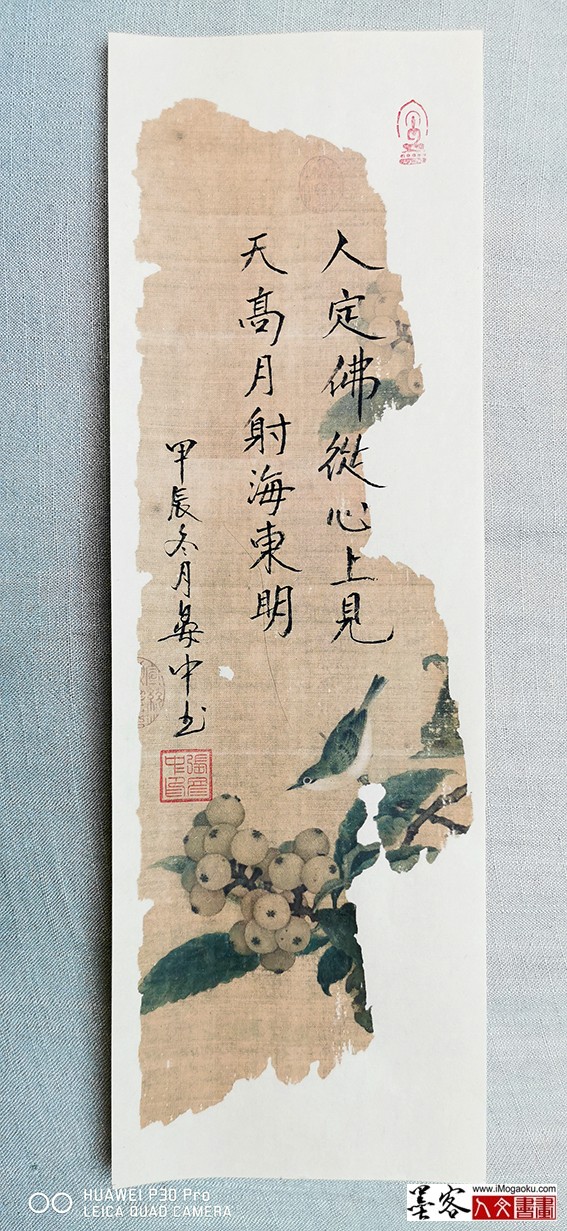 人定佛從心上見
天高月射海東明
甲辰冬月彝中书
HUAWEI P30 Pro
LEICA QUAD CAMERA
www.iMogaoku.com
墨客
人文書畫